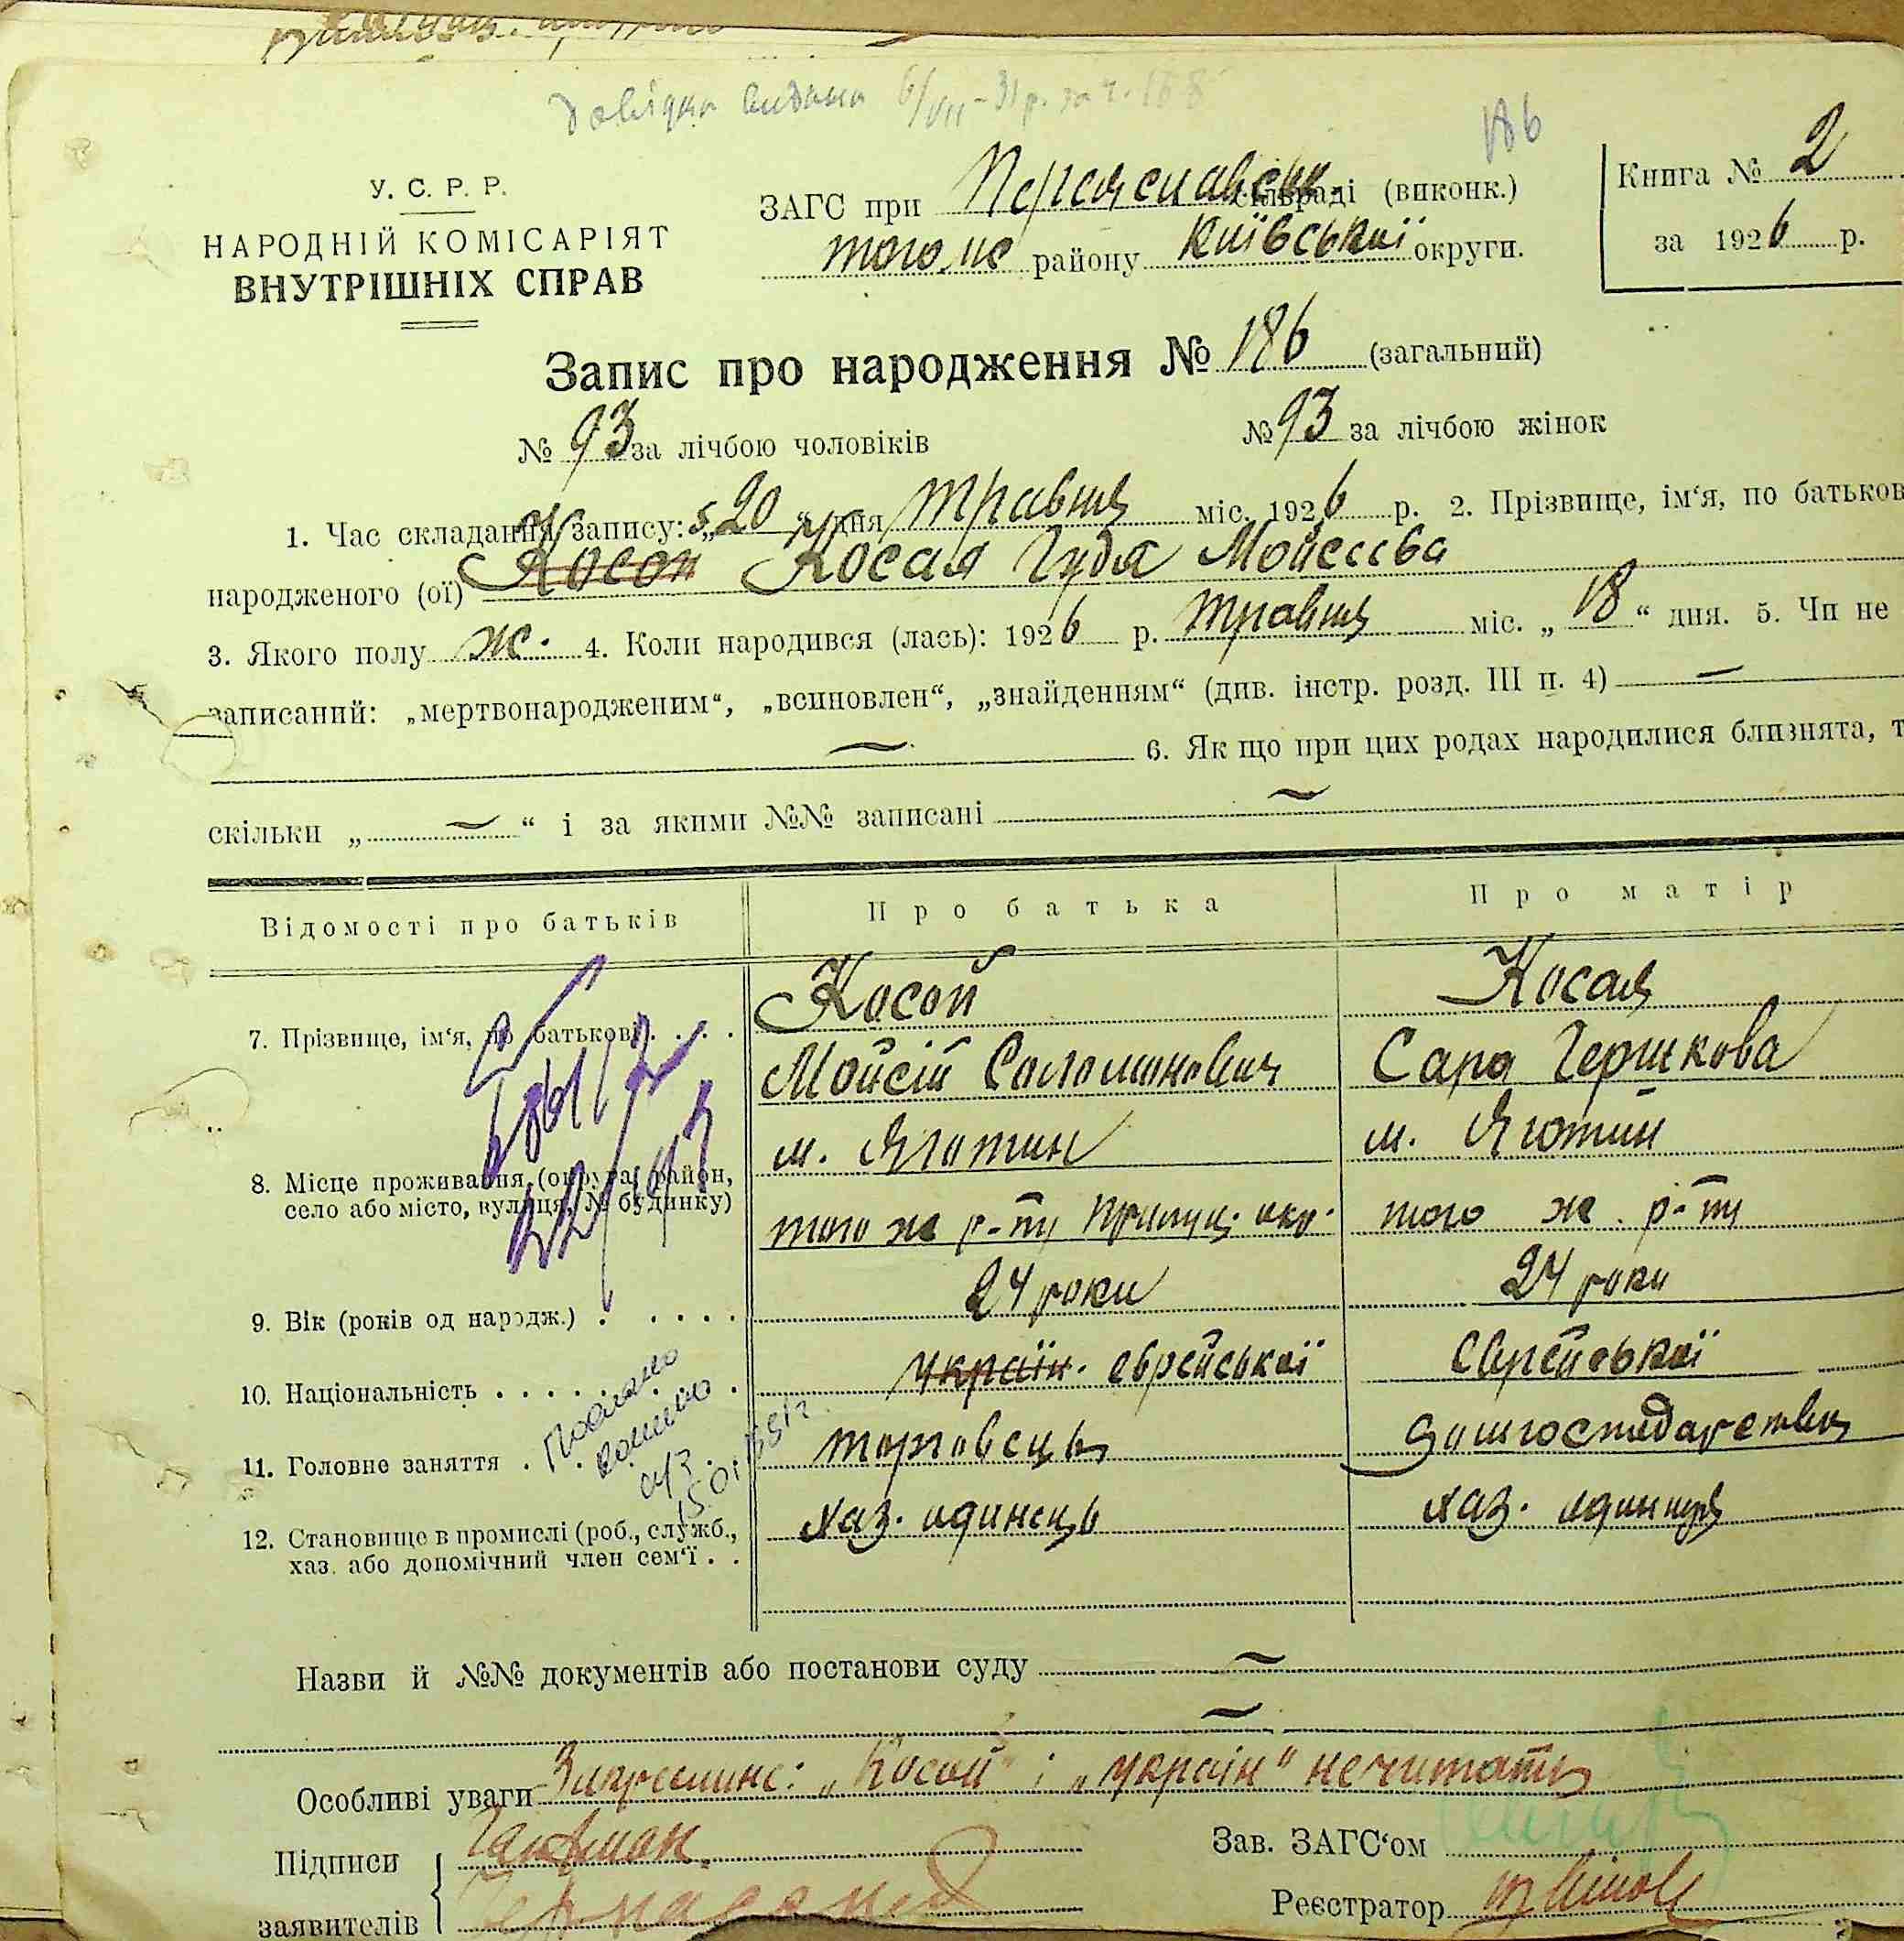 довідка видана 6/VII-31 р. за ч. 168
186
У. С. Р. Р.
НАРОДНІЙ КОМІСАРІЯТ
ВНУТРІШНІХ СПРАВ
ЗАГС при Переяславськ. сільраді (виконк.)
того ж району Київської округи.
Книга № 2
за 1926 р.
Запис про народження № 186 (загальний)
№ 93 за лічбою чоловіків № 93 за лічбою жінок
1. Час складання запису: „20“ дня травня міс. 1926 р. 2. Прізвище, ім‘я, по батьков
народженого (ої) Косой Косая Гудя Мойсеєва
3. Якого полу ж. 4. Коли народився (лась): 1926 р. травня міс. „18“ дня. 5. Чи не
записаний: „мертвонародженим“, „всиновлен“, „знайденням“ (див. інстр. розд. III п. 4) —
— 6. Як що при цих родах народилися близнята, т
скільки „ — “ і за якими №№ записані —
Відомості про батьків Про батька Про матір
7. Прізвище, ім‘я, по батькові . . . . Косой Косая
Мойсій Соломонович Сара Гершкова
8. Місце проживання (округа, район,
село або місто, вулиця, № будинку)
м. Яготин м. Яготин
того ж р-ну Прилуц. окр. того ж р-ну
9. Вік (років од народж.) . . . . . 24 роки 24 роки
10. Національність . . . . . . . . україн. єврейської Єврейської
11. Головне заняття . . . . . торговець домгосподарство
12. Становище в промислі (роб., служб.,
хаз. або допомічний член сем‘ї . .
хаз. одинець хаз. одиниця
Назви й №№ документів або постанови суду —
—
Особливі уваги Закреслине: „Косой“ і „україн“ не читать
Підписи
заявителів
Гантман.
Зав. ЗАГС‘ом
Реєстратор